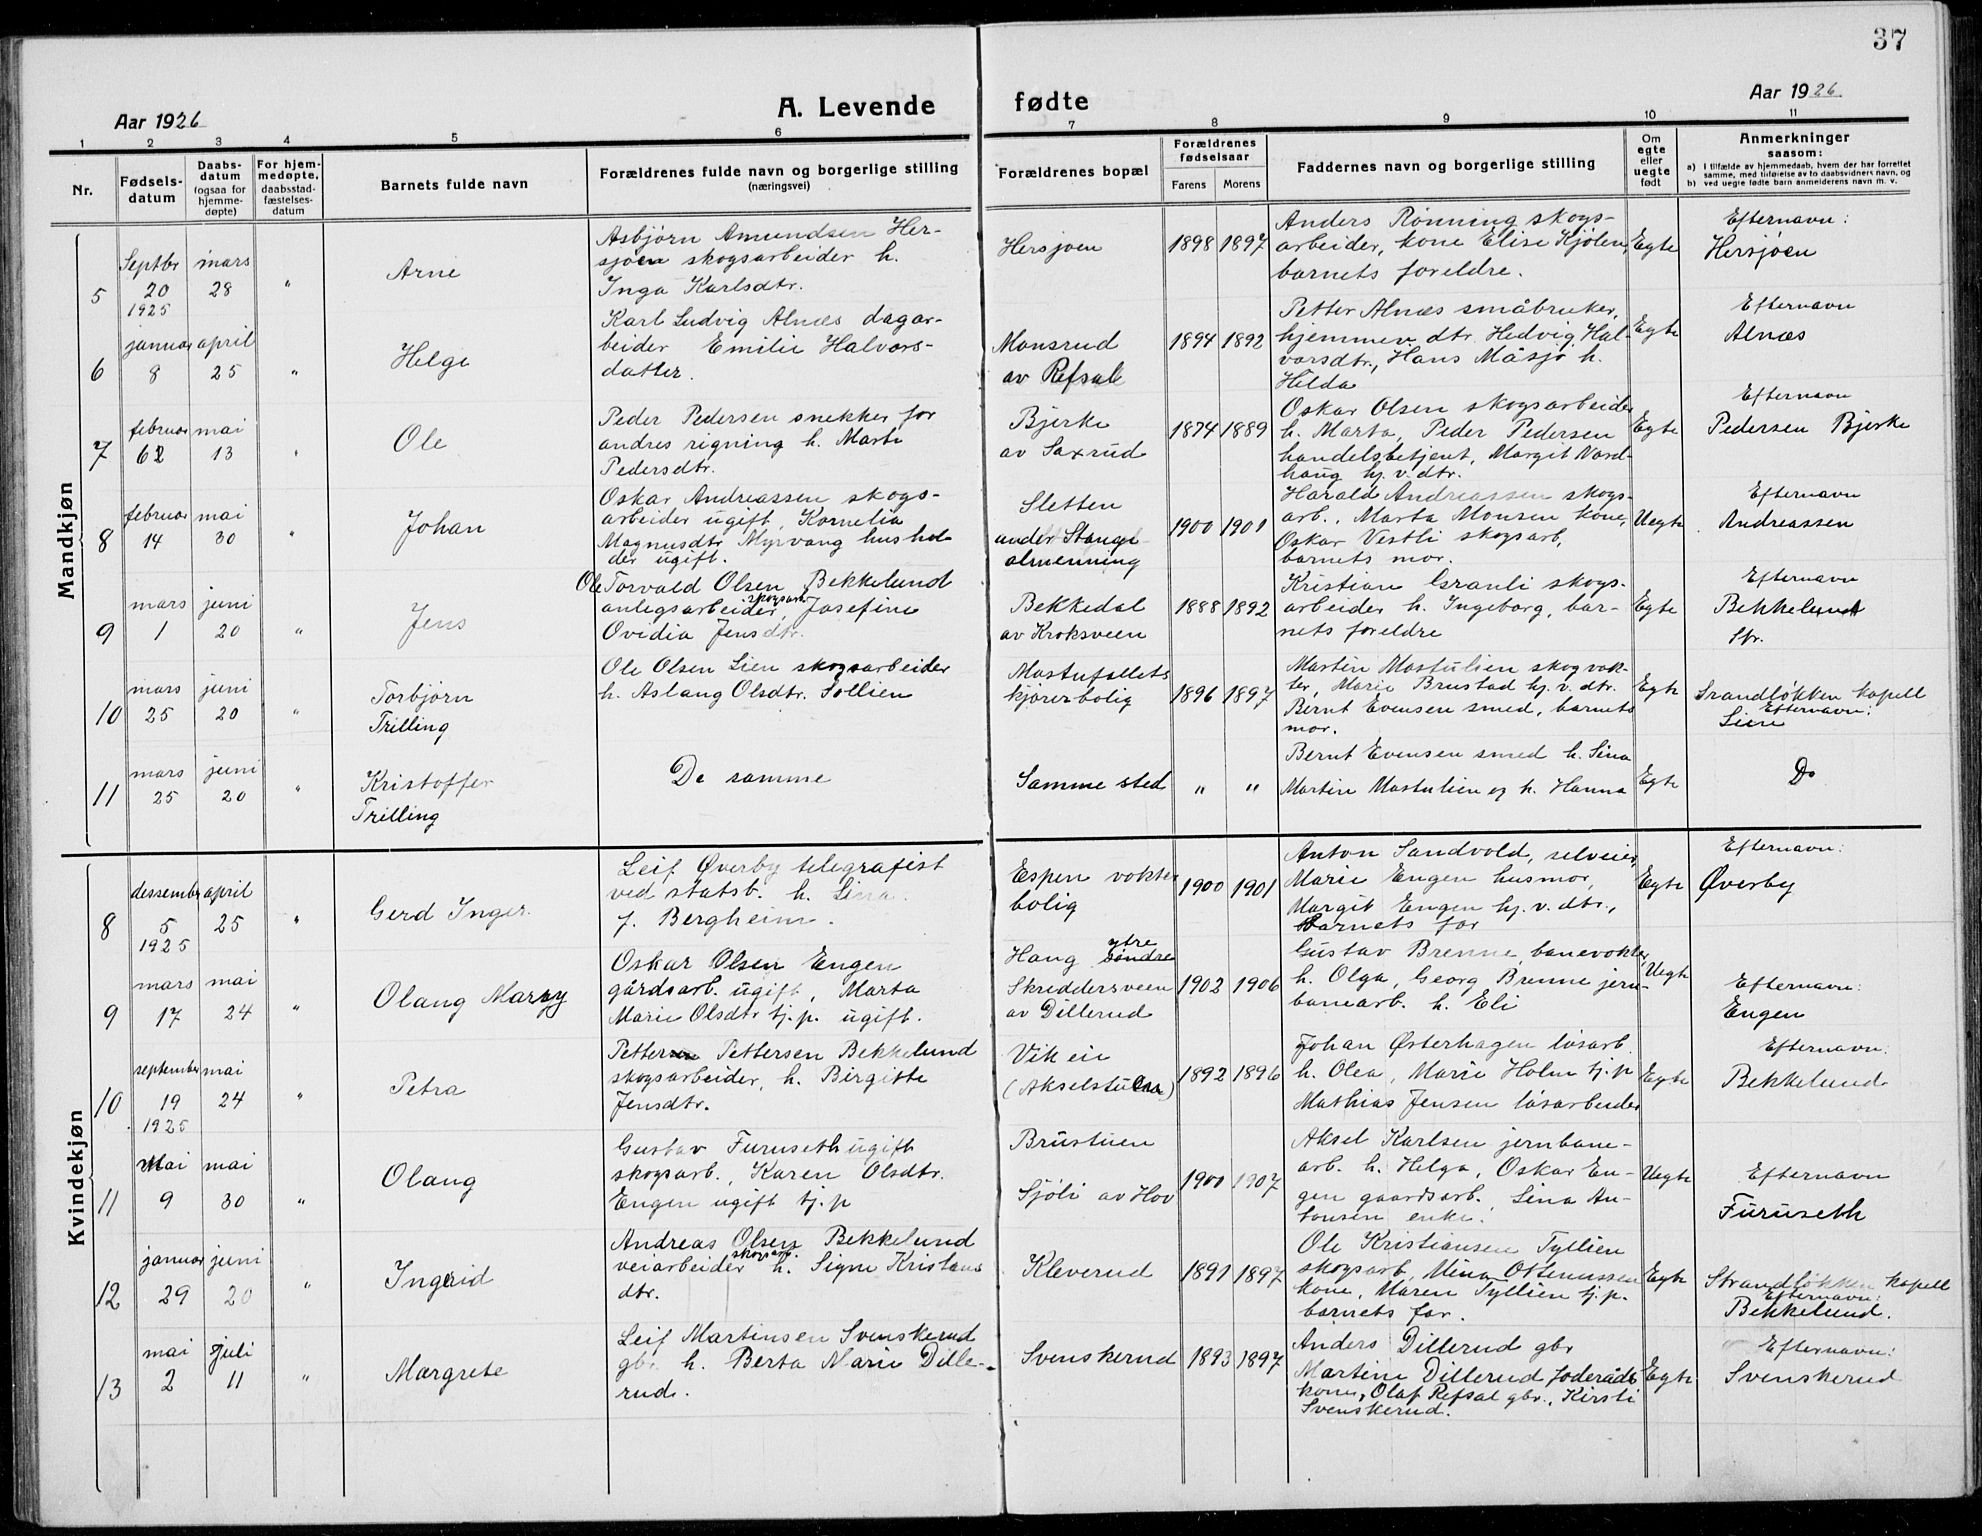 37
Aar 1926
A. Levende fødte
Aar 1926
1 2 3 4 5 6 7 8 9 10 11
Nr.
Fødsels-
datum
Daabs-
datum
(ogsaa for
hjemme-
døpte)
For hjem-
medøpte,
daabsstad-
fæstelses-
datum
Barnets fulde navn
Forældrenes fulde navn og borgerlige stilling
(næringsvei)
Forældrenes bopæl
Forældrenes
fødselsaar
Farens Morens
Faddernes navn og borgerlige stilling
Om
egte
eller
uegte
født
Anmerkninger
saasom:
a) I tilfælde av hjemmedaab, hvem der har forrettet
samme, med tilføielse av to daabsvidners navn, og
b) ved uegte fødte barn anmelderens navn m. v.
Mandkjøn
5
Septbr
20
1925
mars
28
"
Arne
Asbjørn Amundsen Her-
sjøen skogsarbeider h.
Inga Karlsdtr.
Hersjøen
1898 1897
Anders Rønning skogs-
arbeider, kone Elise Kjølen,
barnets foreldre.
Egte
Efternavn:
Hersjøen
6
januar
8
april
25
"
Helge
Karl Ludvig Alnæs dagar-
beider Emilie Halvors-
datter.
Monsrud
av Refsal
1894 1892
Petter Alnæs småbruker,
hjemmev. dtr. Hedvig Hal-
vorsdtr., Hans Måsjø h.
Hilda
Egte
Efternavn
Alnæs
7
februar
62
mai
13
"
Ole
Peder Pedersen snekker for
andres rigning h. Marte
Pedersdtr.
Bjerke
av Saxrud
1874 1889
Oskar Olsen skogsarbeider
h. Marta, Peder Pedersen
handelsbetjent, Margit Nord-
haug hj. v. dtr.
Egte
Efternavn
Pedersen Bjerke
8
februar
14
mai
30
"
Johan
Oskar Andreassen skogs-
arbeider ugift, Kornelia
Magnusdtr Myrvang hushol-
der ugift.
Sletten
under Stange
almenning
1900 1901
Harald Andreassen skogs-
arb., Marta Monsen kone,
Oskar Vestli skogsarb,
barnets mor.
Uegte
Efternavn
Andreassen
9
mars
1
juni
20
"
Jens
Ole Torvald Olsen Bekkelund
anlegsarbeider, skogsarb Josefine
Ovidia Jensdtr.
Bekkedal
av Kroksveen
1888 1892
Kristian Granli skogs-
arbeider h. Ingeborg, bar-
nets foreldre
Egte
Efternavn
Bekkelund
Str.
10
mars
25
juni
20
"
Torbjørn
Trilling
Ole Olsen Lien skogsarbeider
h. Aslaug Olsdtr. Sollien
Mastufallets
kjørerbolig
1896 1897
Martin Mastulien skogvok-
ter, Marie Brustad hj. v. dtr.
Bernt Evensen smed, barnets
mor.
Egte
Strandløkken kapell
Efternavn:
Lien
11
mars
25
juni
20
"
Kristoffer
Trilling
De samme
Samme sted
" "
Bernt Evensen smed h. Lina
Martin Mastulien og h. Hanna
Egte
Do
Kvindekjøn
8
dessember
5
1925
april
25
"
Gerd Inger.
Leif Øverby telegrafist
ved statsb. h. Lina
f. Bergheim.
Espen vokter
bolig
1900 1901
Anton Sandvold, selveier,
Marie Engen husmor,
Margit Engen hj. v. dtr.,
barnets far
Egte
Efternavn:
Øverby
9
mars
17
mai
24
"
Olaug Marry
Oskar Olsen Engen
gårdsarb. ugift, Marta
Marie Olsdtr tj. p. ugift.
Haug ytre søndre
Skriddersveen
av Dillerud
1902 1906
Gustav Brenne, banevokter
h. Olga, Georg Brenne jern-
banearb. h. Eli
Uegte
Efternavn:
Engen
10
september
19
1925
mai
24
"
Petra
Petter Pettersen Bekkelund
skogsarbeider, h. Birgitte
Jensdtr.
Vik eie
(Akselstuen)
1892 1896
Johan Østerhagen løsarb.
h. Olea, Marie Holm tj. p
Mathias Jensen løsarbeider
Egte
Efternavn:
Bekkelund
11
Mai
9
mai
30
"
Olaug
Gustav Furuseth ugift
skogsarb., Karen Olsdtr.
Engen ugift tj. p
Brustuen
Sjøli av Hov
1900 1907
Aksel Karlsen jernbane-
arb. h. Helga, Oskar En-
gen gaardsarb. Lina An-
tonsen enke.
Uegte
Efternavn
Furuseth
12
januar
29
juni
20
"
Ingerid
Andreas Olsen Bekkelund
veiarbeider skogsarb. h. Signe Kristians
dtr.
Kleverud
1891 1897
Ole Kristiansen Tyllien
skogsarb, Mina Ottenussen
kone, Maren Tyllien tj. p.
barnets far.
Egte
Strandløkken kapell
Efternavn:
Bekkelund.
13
mai
2
Juli
11
"
Margrete
Leif Martinsen Svenskerud
gbr. h. Berta Marie Dille-
rud.
Svenskerud
1893 1897
Anders Dillerud gbr
Martine Dillerud foderåds
kone, Olaf Refsal gbr., Kirsti
Svenskerud.
Egte
Efternavn:
Svenskerud